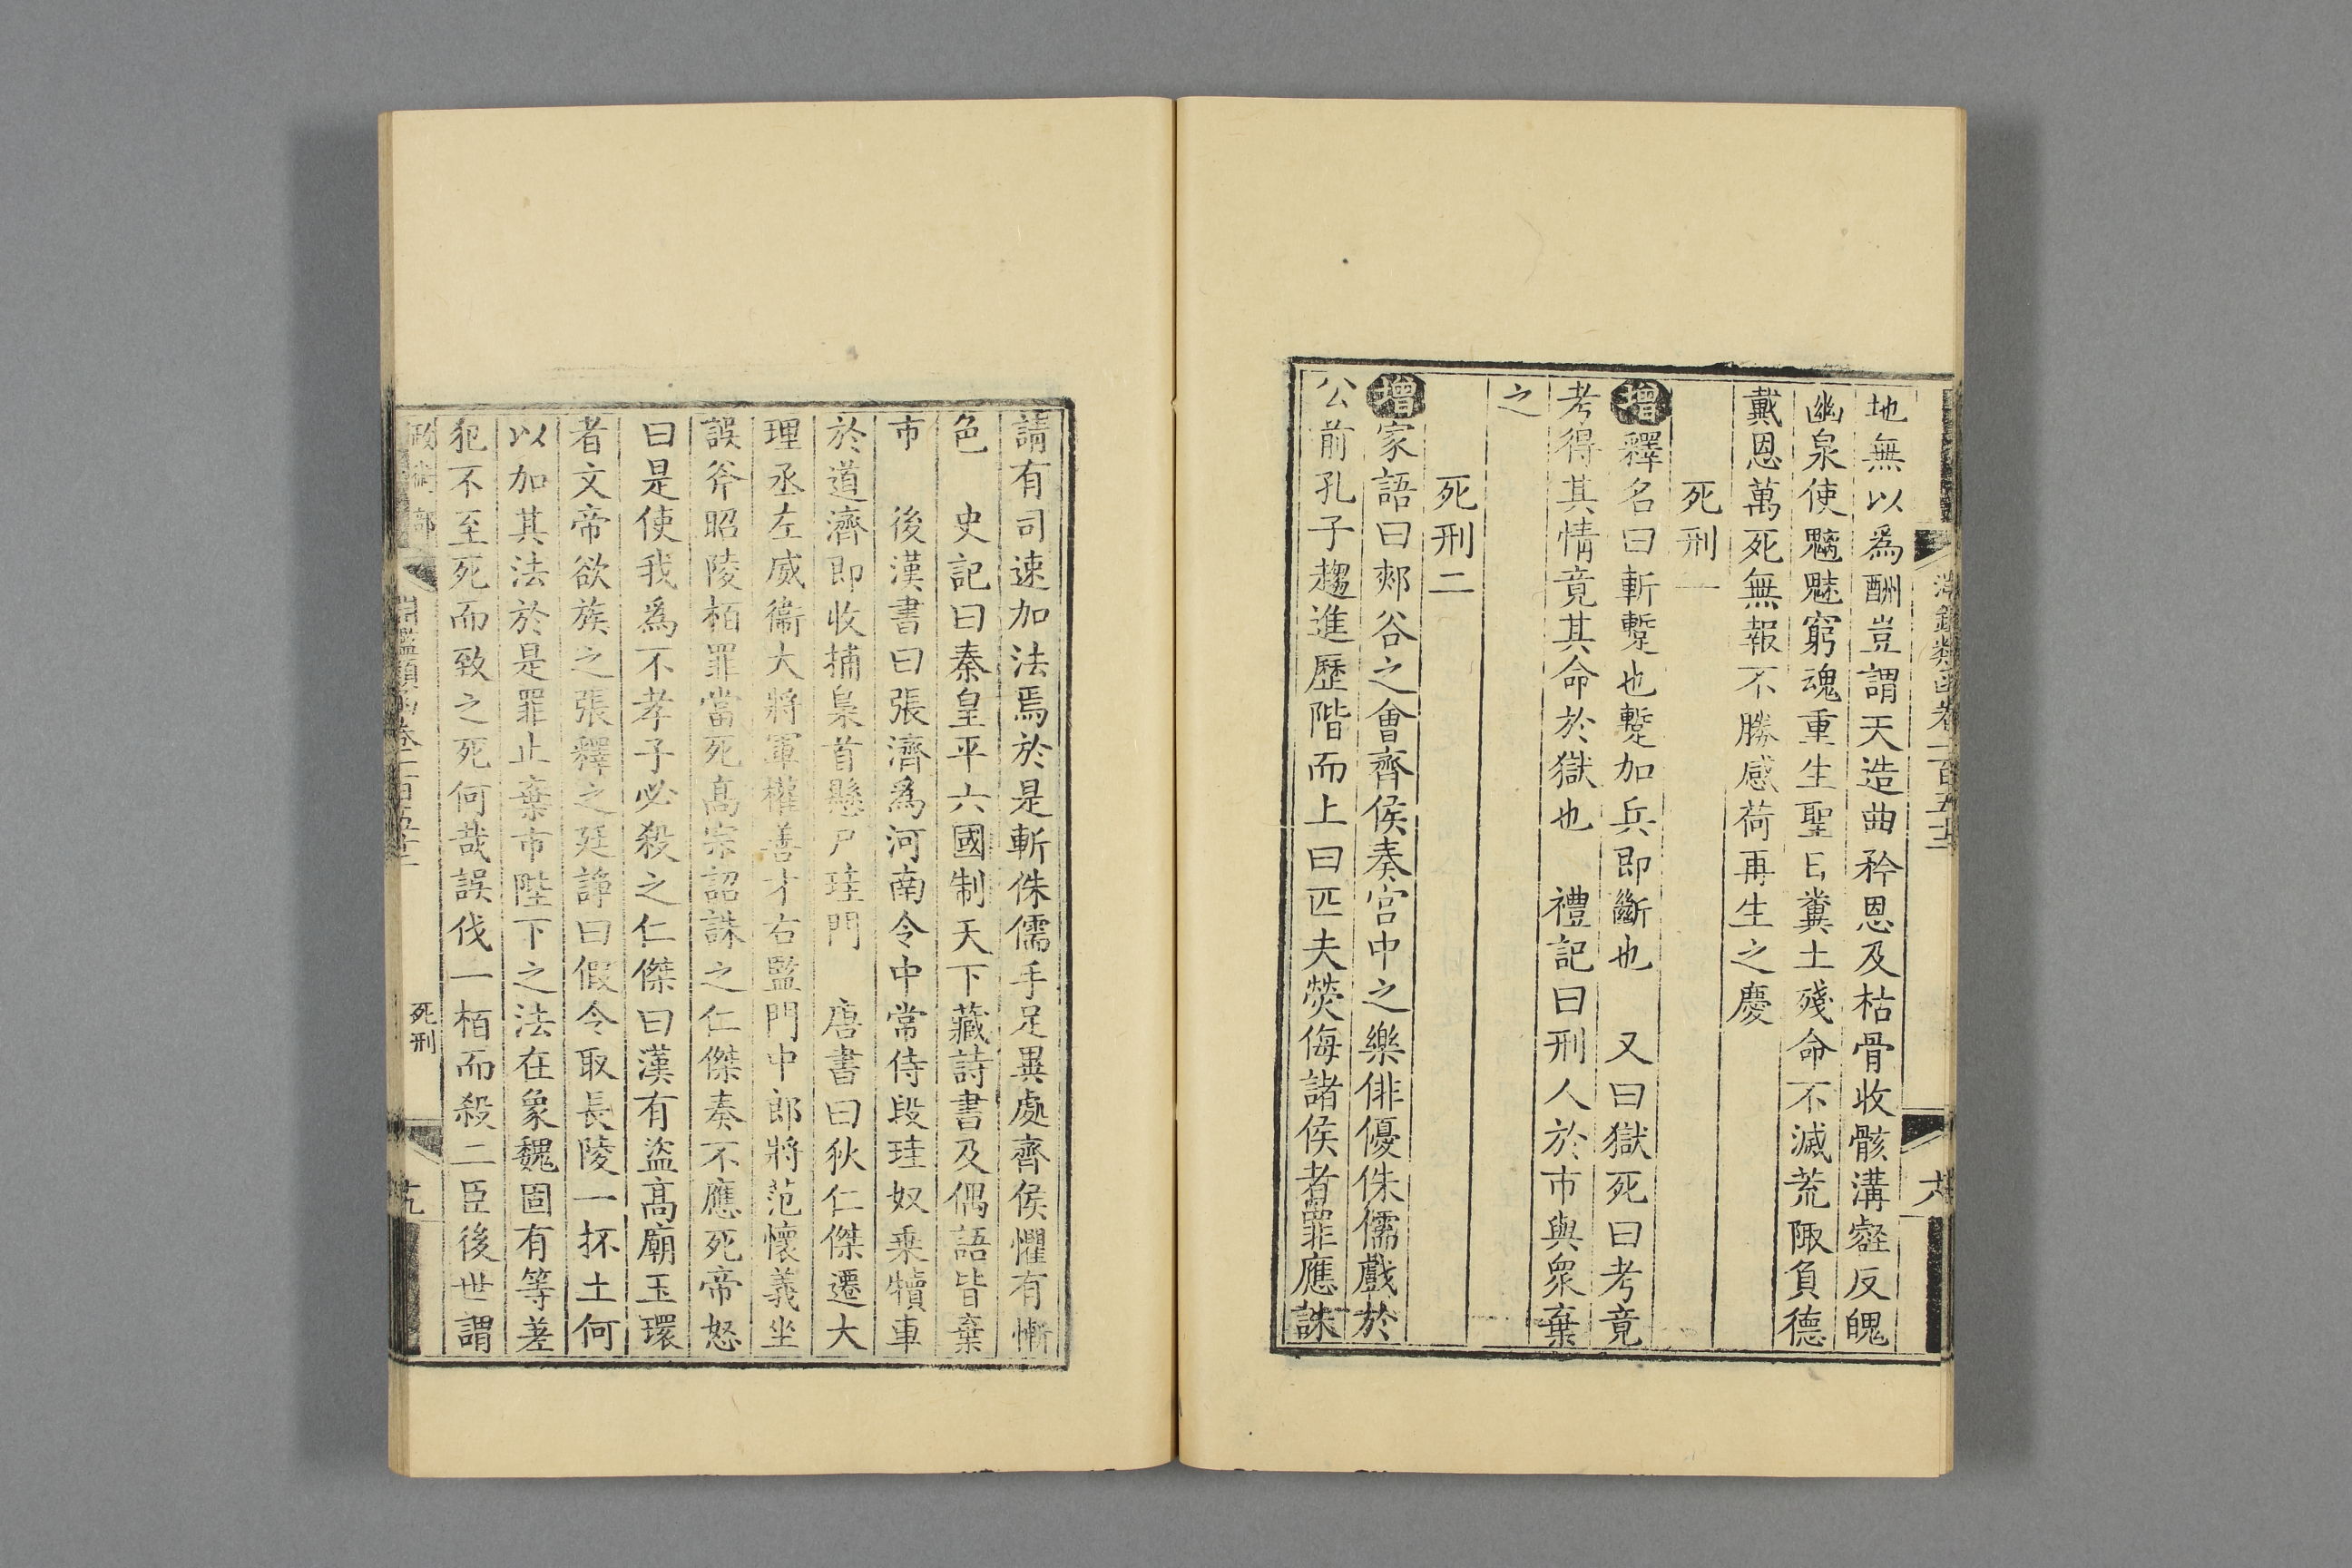 地無以為酬豈謂天造曲矜恩及枯骨收骸溝壑反魄
幽泉使魑魅窮魂重生聖日糞土殘命不滅荒陬負德
戴恩萬死無報不勝感荷再生之慶
死刑一
增釋名曰斬蹔也蹔加兵即斷也　又曰獄死曰考竟
考得其情竟其命於獄也　禮記曰刑人於市與衆棄
之
死刑二
增家語曰郟谷之會齊侯奏宮中之樂俳優侏儒戲於
公前孔子趨進歷階而上曰匹夫熒侮諸侯者罪應誅
請有司速加法焉於是斬侏儒手足異處齊侯懼有慚
色　史記曰秦皇平六國制天下藏詩書及偶語皆棄
市　後漢書曰張濟為河南令中常侍段珪奴乘犢車
於道濟即收捕梟首懸尸珪門　唐書曰狄仁傑遷大
理丞左威衞大將軍權善才右監門中郎將范懷義坐
誤斧昭陵栢罪當死高宗詔誅之仁傑奏不應死帝怒
曰是使我為不孝子必殺之仁傑曰漢有盜高廟玉環
者文帝欲族之張釋之廷諍曰假令取長陵一抔土何
以加其法於是罪止棄市陛下之法在象魏固有等差
犯不至死而致之死何哉誤伐一栢而殺二臣後世謂
政術部
淵鑑類函卷一百五十三
死刑